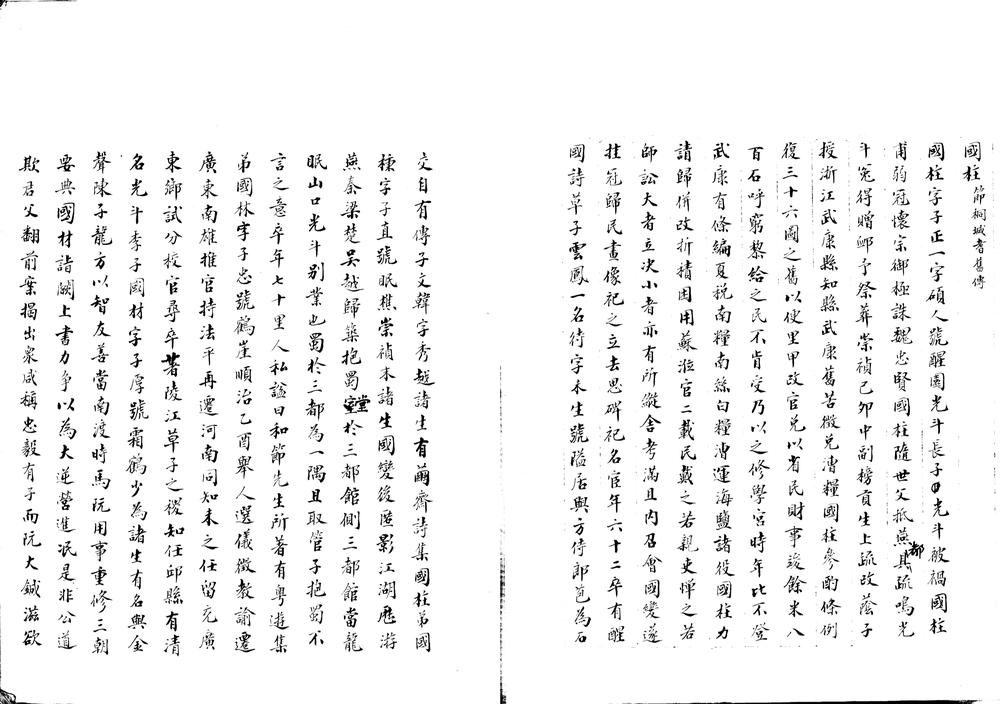 國柱節桐城耆舊傳
國柱字子正一字碩人號醒園光斗長子也光斗被禍國柱
甫弱冠懷宗御極誅魏忠賢國柱隨世父抵燕都具疏鳴光
斗冤得贈䘏予祭葬崇禎己卯中副榜貢生上疏改蔭子
授浙江武康縣知縣武康舊苦徵兌漕糧國柱參酌條例
復三十六圖之舊以便里甲改官兌以省民財事竣餘米八
百石呼窮黎給之民不肯受乃以之修學宮時年比不登
武康有條編夏稅南糧南絲白糧漕運海鹽諸役國柱力
請歸併改折積困用蘇涖官二載民戴之若親吏憚之若
師訟大者立决小者亦有所縱舍考滿且內召會國變遂
挂冠歸民畫像祀之立去思碑祀名宦年六十二卒有醒
國詩草子雲鳳一名待字本生號隘居與方侍郎苞為石
交自有傳子文韓字秀越諸生有繭齋詩集國柱弟國
棟字子直號眠樵崇禎末諸生國變後匿影江湖歷游
燕秦梁楚吳越歸築抱蜀堂於三都館側三都館當龍
眠山口光斗別業也蜀於三都為一隅且取管子抱蜀不
言之意卒年七十里人私諡曰和節先生所著有粵遊集
弟國林字子忠號鶴崖順治乙酉舉人選儀徵教諭遷
廣東南雄推官持法平再遷河南同知未之任留充廣
東鄉試分校官尋卒著陵江草子之稷知任邱縣有清
名光斗季子國材字子厚號霜鶴少為諸生有名與金
聲陳子龍方以智友善當南渡時馬阮用事重修三朝
要典國材詣闕上書力爭以為大逆營進泯是非公道
欺君父翻前案揭出衆咸稱忠毅有子而阮大鋮滋欲